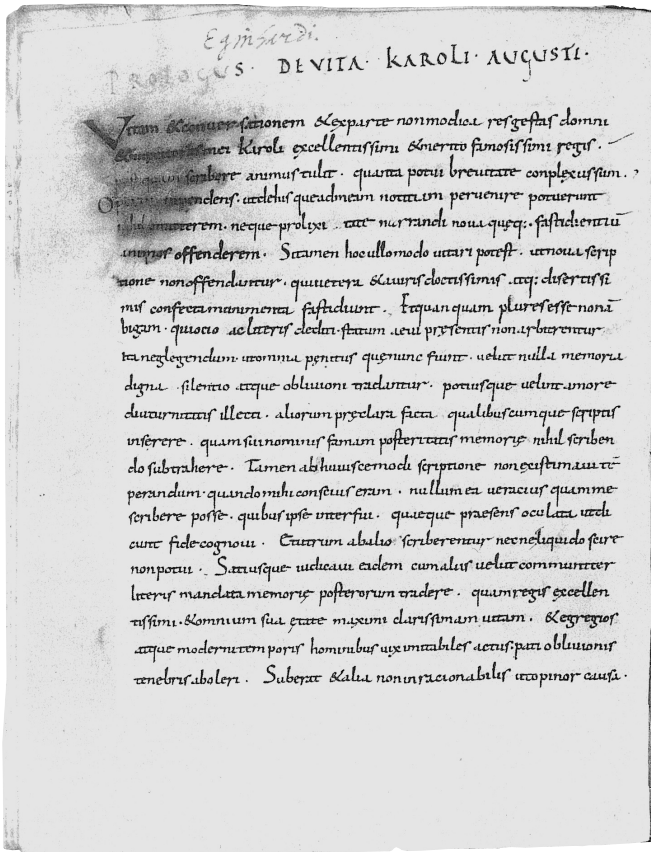 Eginhardi.
PROLOGUS · DE VITA · KAROLI · AUGUSTI ·
Vitam & conuersationem & exparte nonmodica resgestas domni
& mei Karoli excellentissimi & merito famosissimi regis .
scribere animus tulit . quanta potui breuitate conplexussum .
Operam inpendens . utdehis queadmeam notitiam peruenire potuerunt
omitterem . neque prolixitate narrandi noua quęq; . fastidientiū
animos offenderem . Sitamen hocullomodo uitari potest . utnoua scrip
tione nonoffendantur . quiuetera & auiris doctissimis atq; disertissi
mis confectamonumenta fastidiunt . Etquanquam pluresessenonā
bigam . quiocio acliteris dediti . statum aeui pręsentis nonarbitrentur
ita neglegendum . utomnia pęnitus quęnunc fiunt . uelut nulla memoria
digna silentio atque obliuioni tradantur . potiusque uelint amore
diuturnitatis illecti . aliorum pręclara facta qualibuscumque scriptis
inserere . quam suinominis famam posteritatis memorię nihil scriben
do subtrahere . Tamen abhuiuscemodi scriptione nonexistimaui tē
perandum . quandomihi conscius eram . nullum ea ueracius quamme
scribere posse . quibus ipse interfui . quaeque praesens oculata utdi
cunt fide cognoui . Etutrum abalio scriberentur necne liquido scire
nonpotui . Satiusque iudicaui eadem cumaliis uelut communiter
literis mandata memorię posterorum tradere . quamregis excellen
tissimi . & omnium sua ętate maximi clarissimam uitam . & egregios
atque moderni temporis hominibus uix imitabiles actus : pati obliuionis
tenebris aboleri . Suberat & alia noninracionabilis utopinor causa .